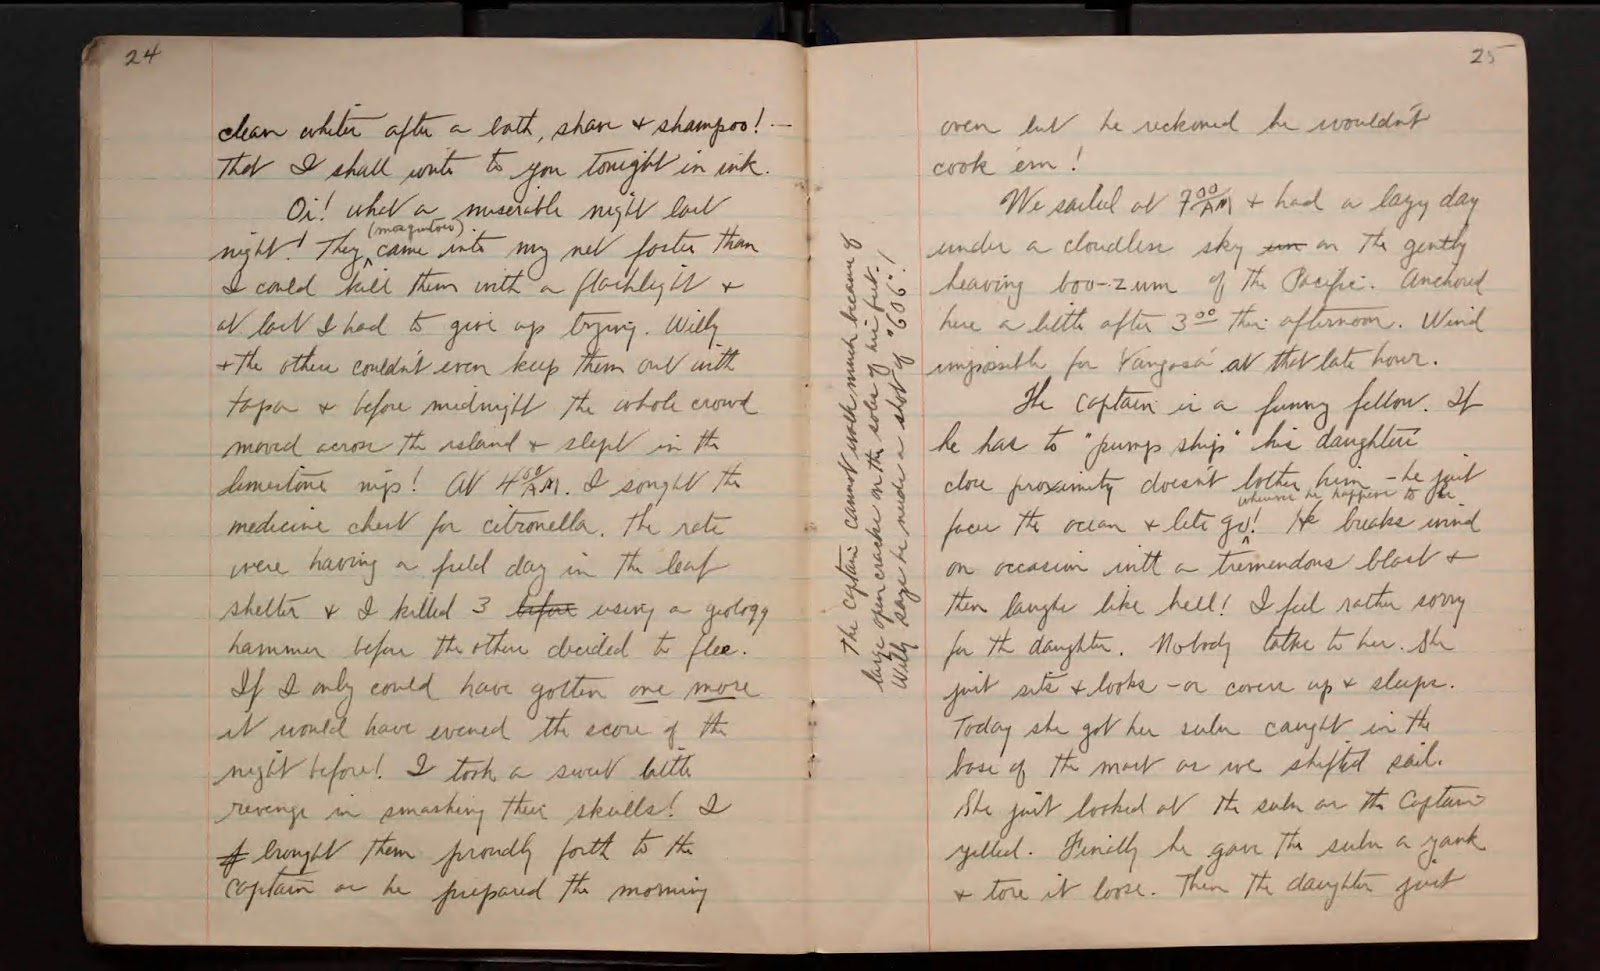 24
clean whites after a bath, shave & shampoo! —
that I shall write to you tonight in ink.
Oi! what a miserable night last
(mosquitoes)
night! They came into my net faster than
I could kill them with a flashlight &
at last I had to give up trying. Willy
& the others couldn't even keep them out with
tapa & before midnight the whole crowd
moved across the island & slept in the
limestone nips! At 4:00 A.M. I sought the
medicine chest for citronella. The rats
were having a field day in the leaf
shelter & I killed 3 before using a geology
hammer before the others decided to flee.
If I only could have gotten one more
it would have evened the score of the
night before! I took a sweet little
revenge in smashing their skulls! I
brought them proudly forth to the
Captain as he prepared the morning
The captain cannot walk much because of
large open cracks on the soles of his feet.
Willy says he needs a shot of "606"!
25
oven but he reckoned he wouldn't
cook 'em!
We sailed at 7 00 AM & had a lazy day
under a cloudless sky on the gently
heaving boo-zum of the Pacific. Anchored
here a little after 3 00 this afternoon. Wind
impossible for Vangasá at that late hour.
The Captain is a funny fellow. If
he has to "pump ship" his daughters
close proximity doesn't bother him – he just
whenever he happens to be
faces the ocean & lets go! He breaks wind
on occasion with a tremendous blast &
then laughs like hell! I feel rather sorry
for the daughter. Nobody talks to her. She
just sits & looks – or covers up & sleeps.
Today she got her sulu caught in the
base of the mast as we shifted sail.
She just looked at the sulu as the Captain
yelled. Finally he gave the sulu a yank
& tore it loose. Then the daughter just